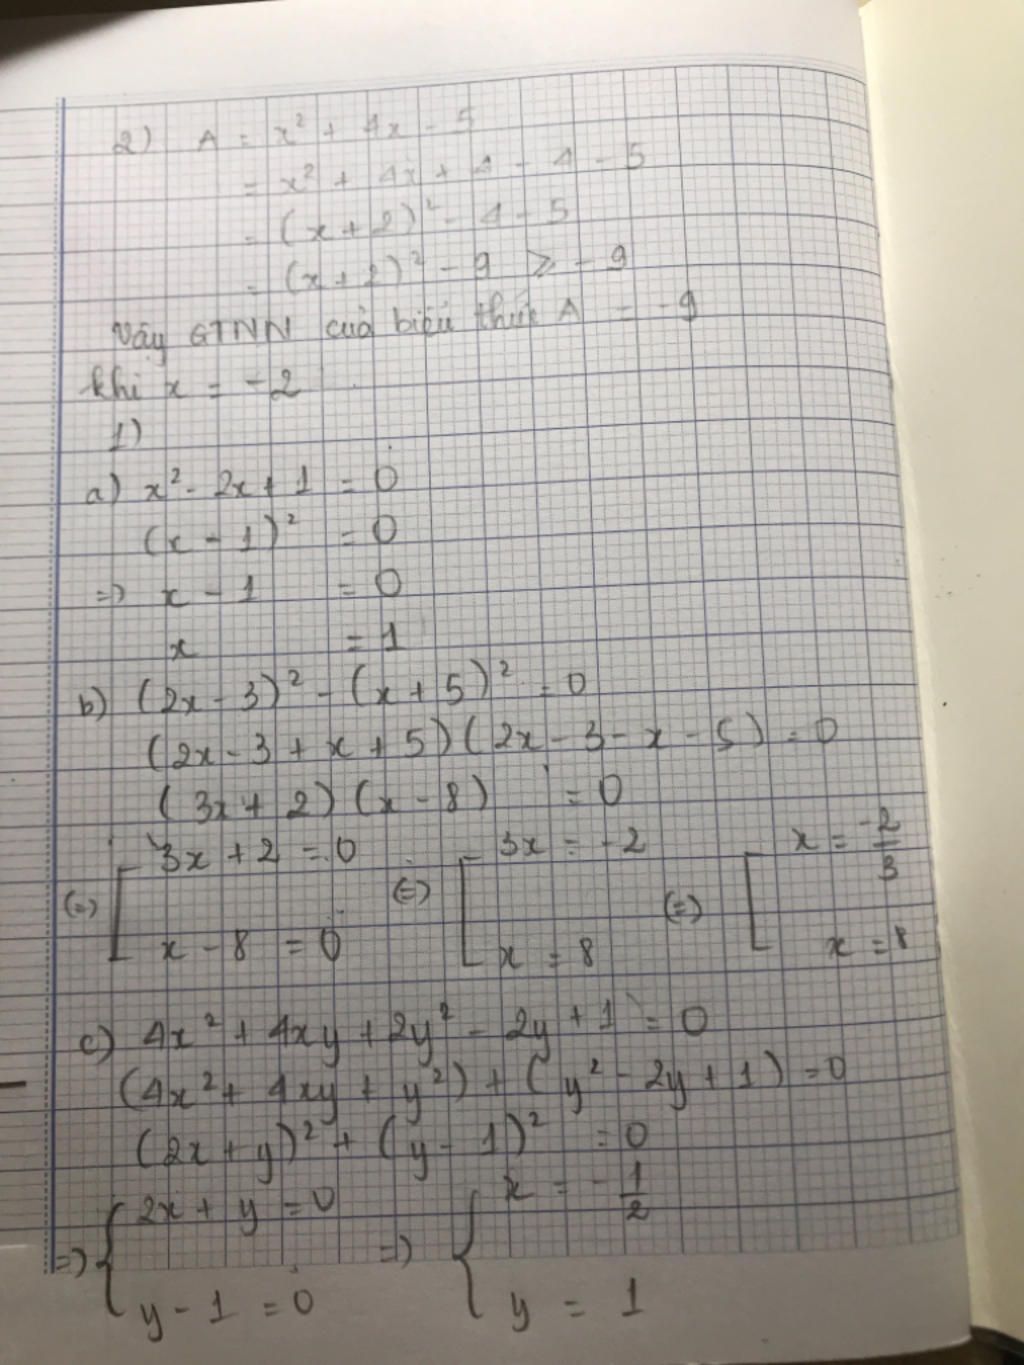 2) A = x² + 4x - 5
= x² + 4x + 4 - 4 - 5
= (x+2)² - 4 - 5
= (x+2)² - 9 ⩾ -9
Vậy GTNN của biểu thức A = -9
khi x = -2
1)
a) x² - 2x + 1 = 0
(x - 1)² = 0
=> x - 1 = 0
x = 1
b) (2x - 3)² - (x + 5)² = 0
(2x - 3 + x + 5)(2x - 3 - x - 5) = 0
(3x + 2)(x - 8) = 0
(=) [ 3x + 2 = 0 (=) [ 3x = -2 (=) [ x = -2/3
x - 8 = 0 x = 8 x = 8
c) 4x² + 4xy + 2y² - 2y + 1 = 0
(4x² + 4xy + y²) + (y² - 2y + 1) = 0
(2x + y)² + (y - 1)² = 0
=> { 2x + y = 0 => { x = -1/2
y - 1 = 0 y = 1